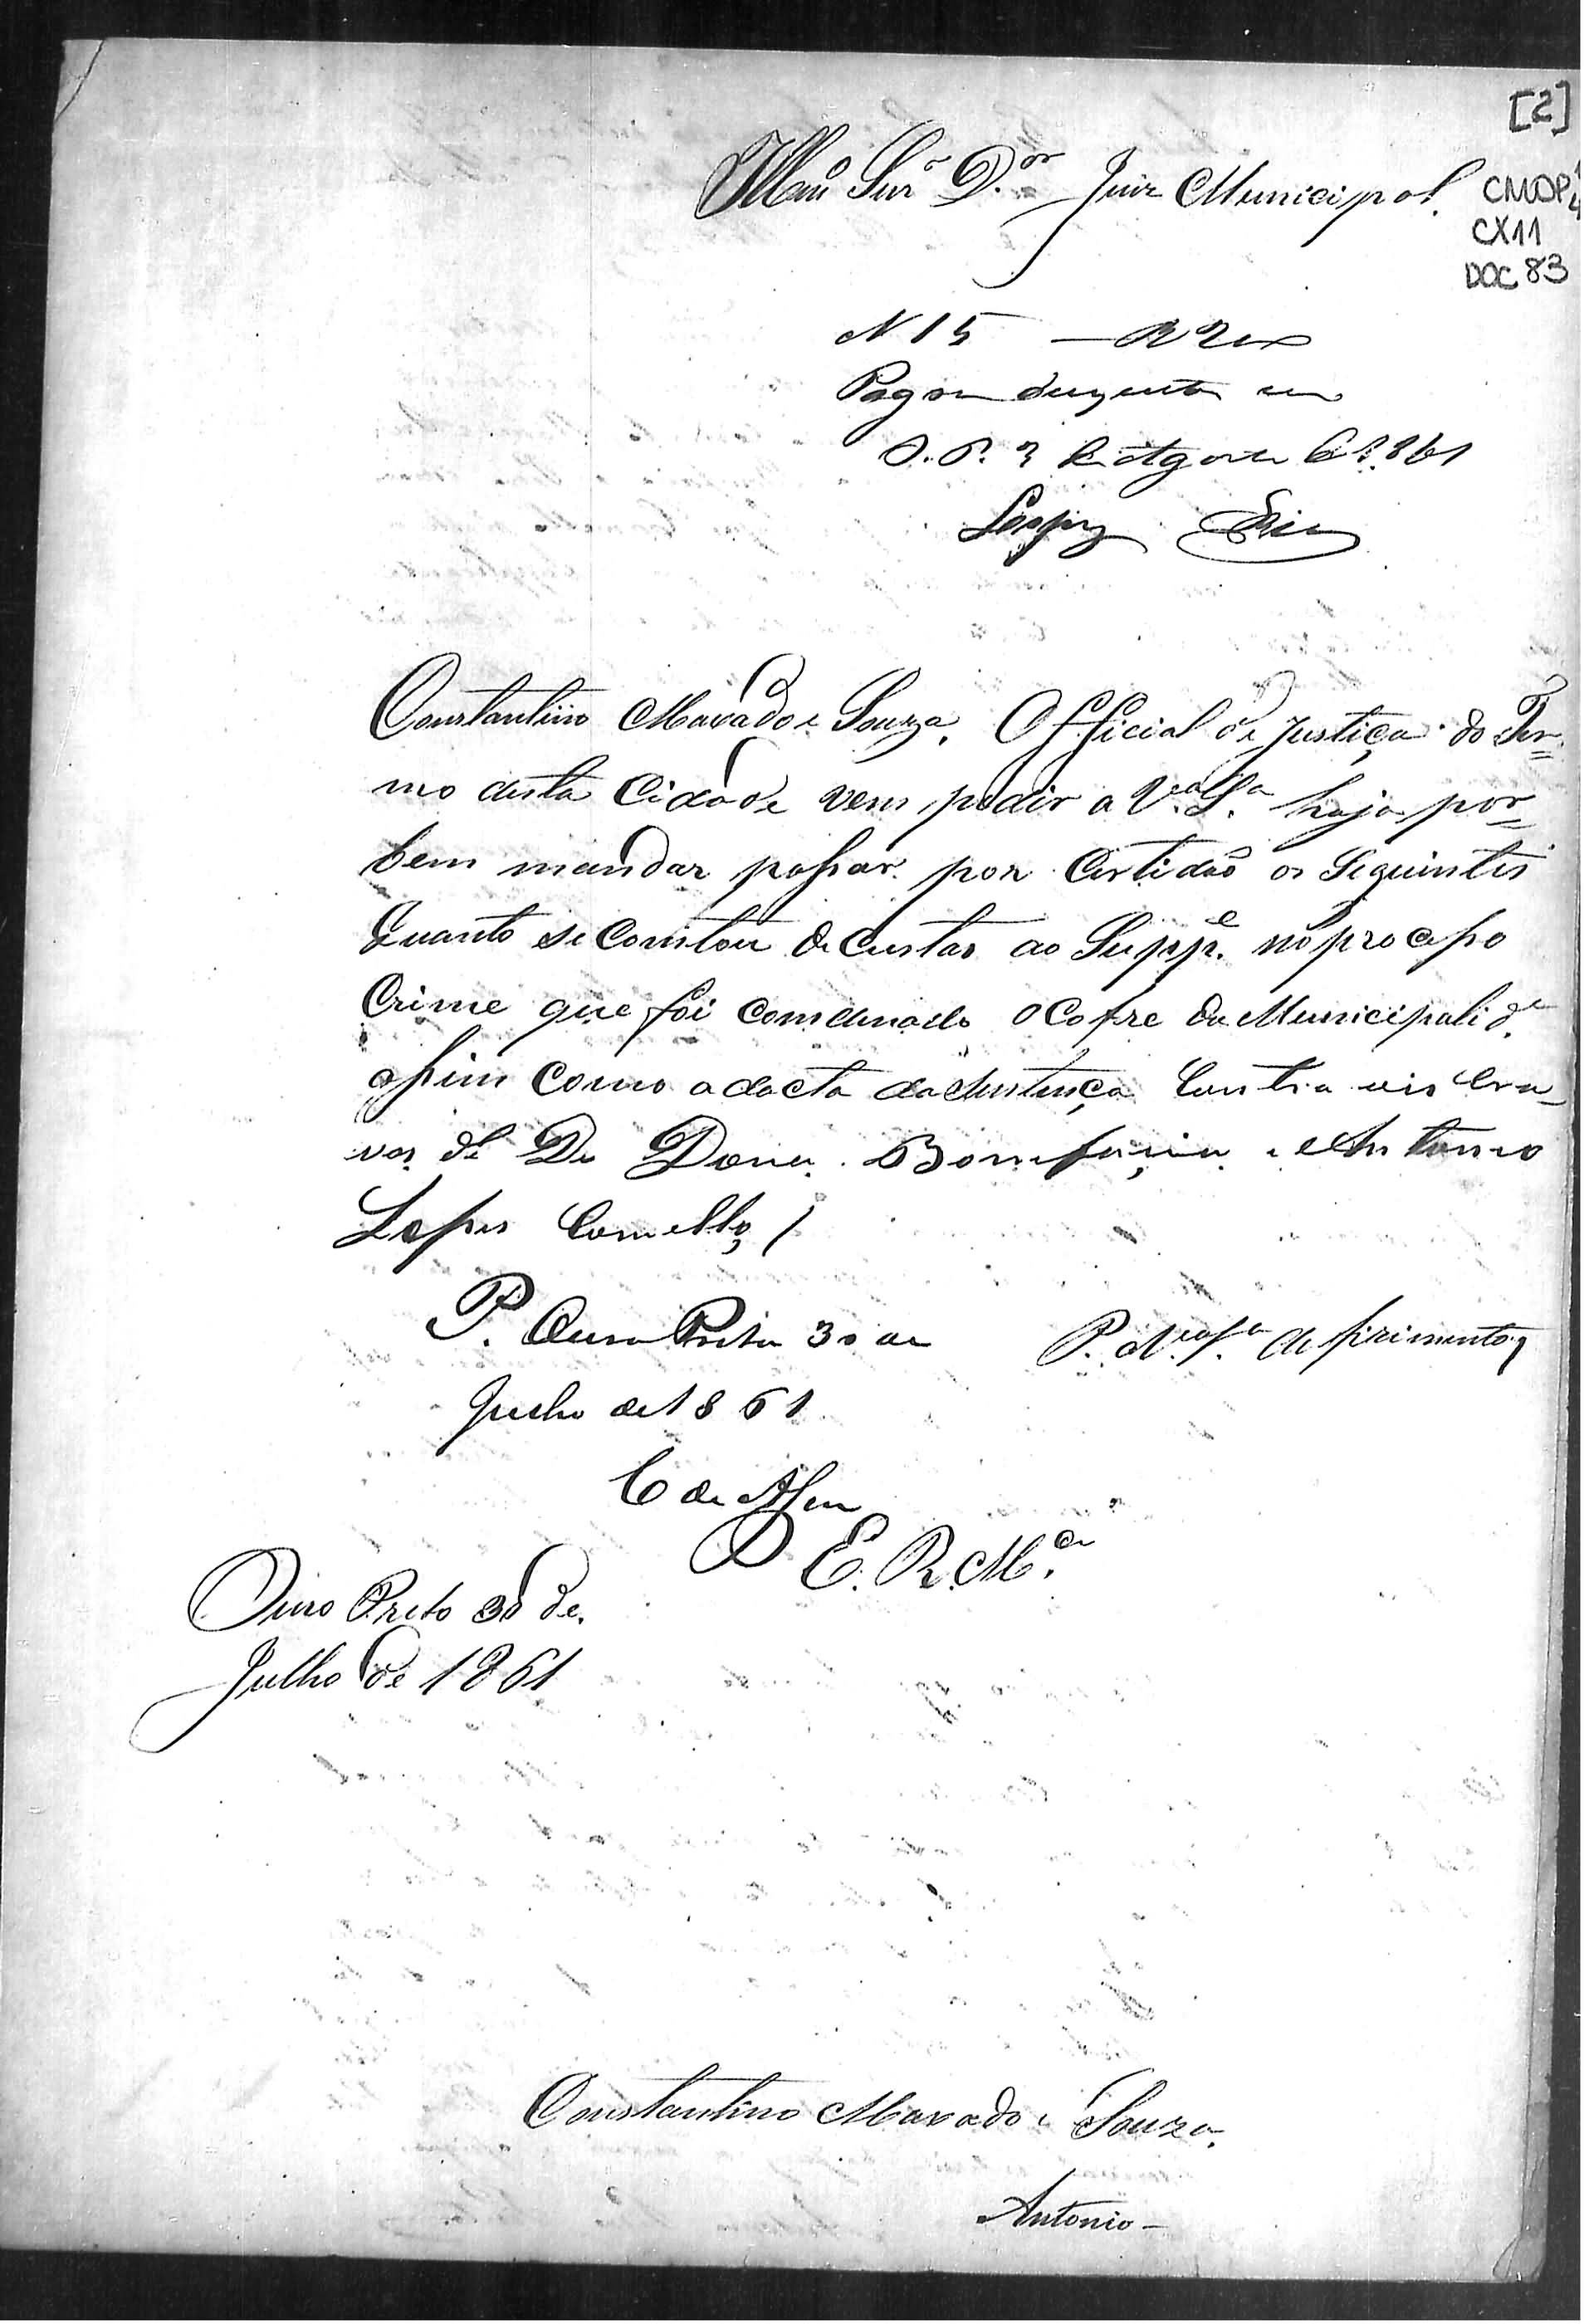 [2]
Illmº Snrº D.or Juiz Municipal.
CMOP
CX11
DOC 83
N 15 — R 200
Pagou duzentos reis
O. P. 2 de Agosto de 1861
Constantino Marado e Souza, Official de Justiça do Ter=
mo desta Cidade vem pedir a V.ª S.ª haja por=
bem mandar passar por Certidaõ os Seguintes
Quanto se Contou de Custas ao Supp.e no processo
Crime que foi comdenado o Cofre da Municipalid.e
assim como a dacta da Sentença Contra os escra-
vos de Dona Bonifacia e Antonio
Lopes
P. Ouro Preto 30 de
Julho de 1861
P. a V.ª S.ª deferimento
E. R. M.ce
Ouro Preto 30 de
Julho de 1861
Constantino Marado e Souza.
Antonio -